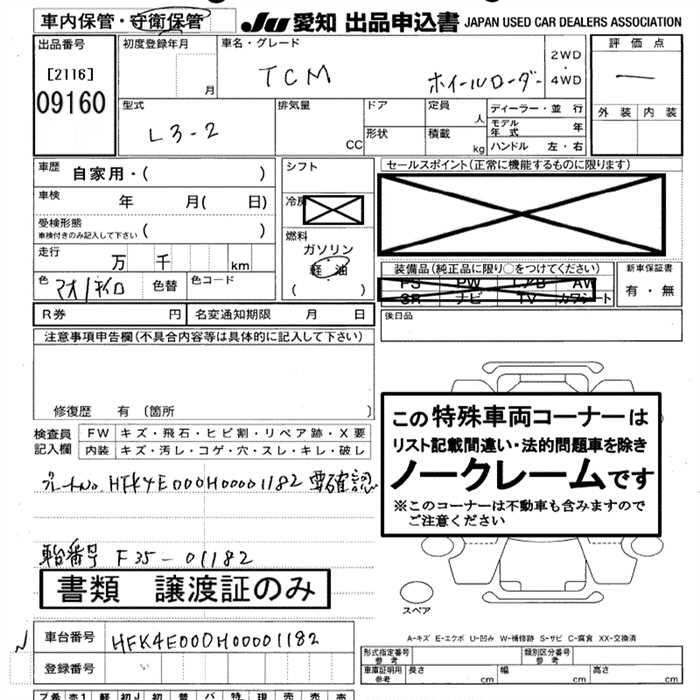 車内保管・守衛保管
JU 愛知 出品申込書 JAPAN USED CAR DEALERS ASSOCIATION
出品番号
[2116]
09160
初度登録年月
月
車名・グレード
TCM ホイールローダー
2WD
・
4WD
評価点
一
外装 内装
型式
L3-2
排気量
CC
ドア
形状
定員
人
積載
kg
ディーラー・並 行
モデル年式 年
ハンドル 左・右
車歴
自家用・( )
車検 年 月( 日)
受検形態
車検付きのみ記入して下さい ( )
走行 万 千 km
色 アオ/チイロ 色替 色コード
シフト
冷房
燃料
ガソリン
軽 油
( )
セールスポイント(正常に機能するものに限ります)
装備品(純正品に限り○をつけてください)
PS PW エアB AW
SR ナビ TV カワシート
新車保証書
有・無
R券 円 名変通知期限 月 日
後日品
注意事項申告欄(不具合内容等は具体的に記入して下さい)
修復歴 有 〔箇所 〕
検査員記入欄
FW キズ・飛石・ヒビ割・リペア跡・X要
内装 キズ・汚レ・コゲ・穴・スレ・キレ・破レ
プレートNo. HFK4E000H00001182 要確認
車台番号 F35-01182
書類 譲渡証のみ
この特殊車両コーナーは
リスト記載間違い・法的問題車を除き
ノークレームです
※このコーナーは不動車も含みますので
ご注意ください
スペア
A-キズ E-エクボ U-凹み W-補修跡 S-サビ C-腐食 XX-交換済
車台番号 HFK4E000H00001182
登録番号
形式指定番号
参考
類別区分番号
参考
車庫証明用
参考
長さ cm 幅 cm 高さ cm